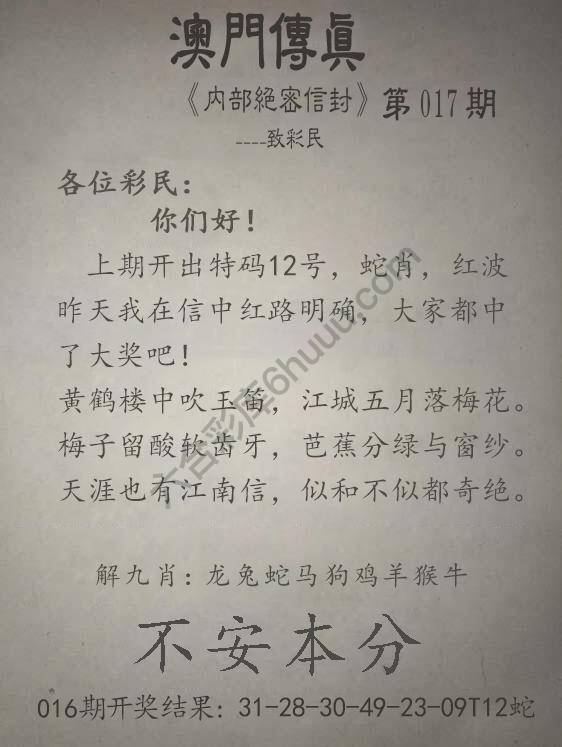 澳門傳眞
《内部絕密信封》第017期
----致彩民
各位彩民：
你们好！
上期开出特码12号，蛇肖，红波
昨天我在信中红路明确，大家都中
了大奖吧！
黄鹤楼中吹玉笛，江城五月落梅花。
梅子留酸软齿牙，芭蕉分绿与窗纱。
天涯也有江南信，似和不似都奇绝。
六合彩库6huuu.com
解九肖：龙兔蛇马狗鸡羊猴牛
不安本分
016期开奖结果：31-28-30-49-23-09T12蛇